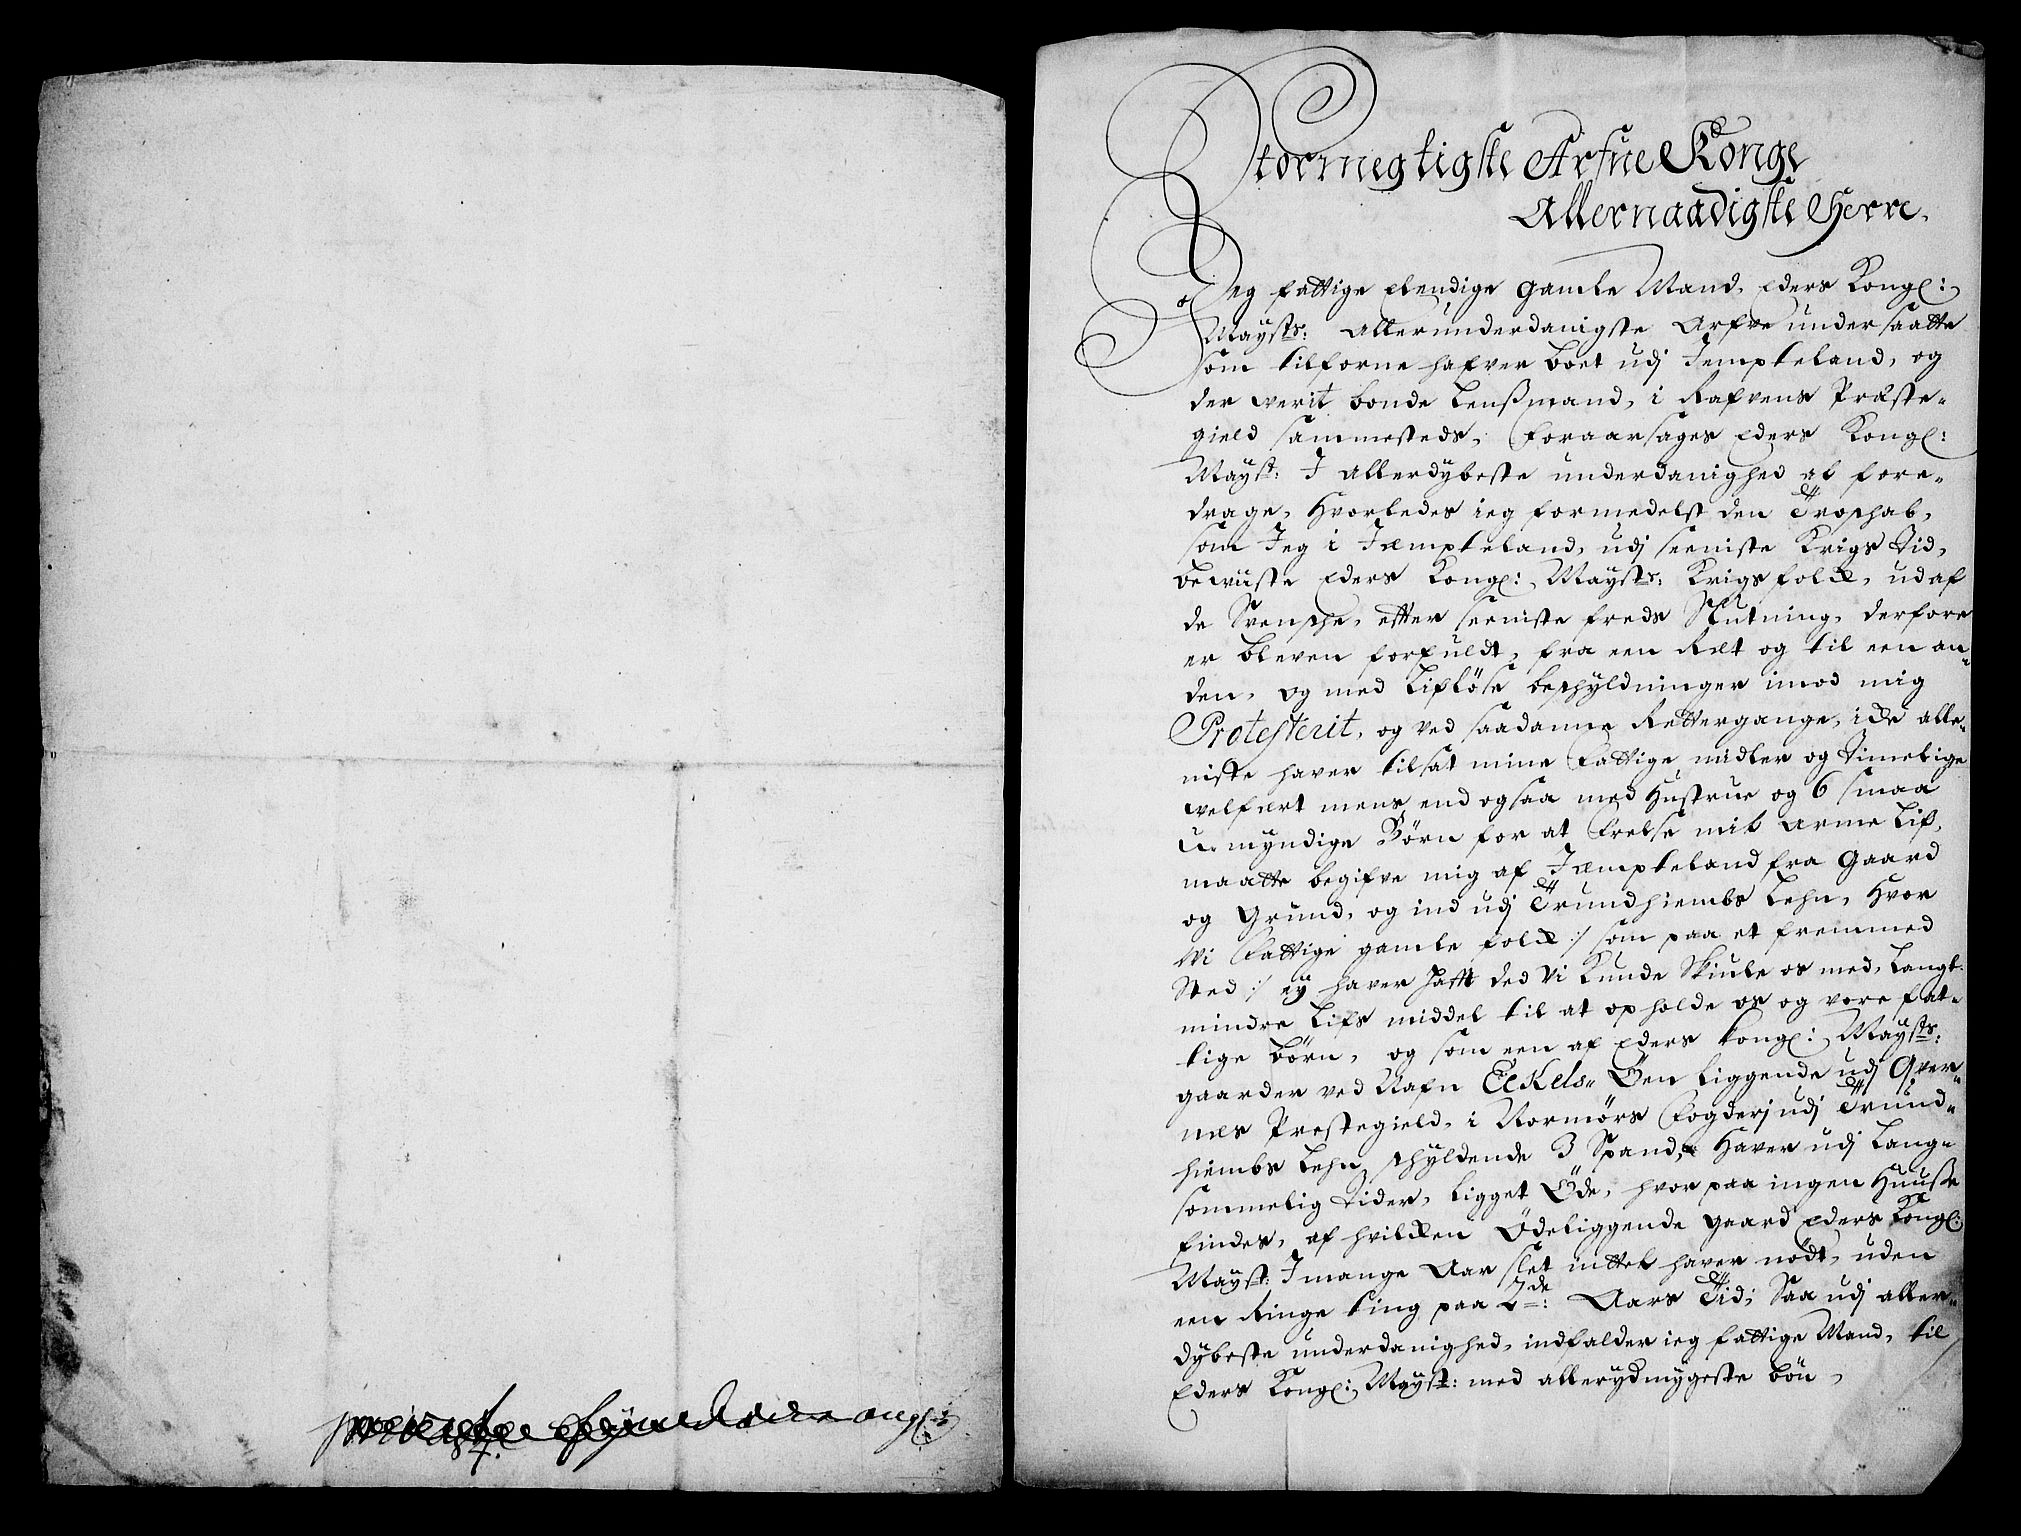 Stormegtigste Arfue Konge
Allernaadigste Herre.
Jeg fattige Elendige gamle Mand, Eders Kongl:
Maÿsts: Allerunderdanigste Arfve undersaatte
som tilforne hafver boet udj Jempteland, og
der werit bonde Lenßmand, i Rafvens Præste-
gield sammesteds, foraarsages Eders Kongl:
Maÿst: I allerdybeste underdanighed at fore-
drage, Hvorledes ieg formedelst den Troschab,
som Jeg i Jæmpteland, udj seeniste Krigs Tid,
bewiiste Eders Kongl: Maÿsts: Krigsfolck, ud af
de Svensche, efter seeniste freds Slutning, derfore
er bleven forfuldt, fra een Ræt og til een an-
den, og med Lifløse beschyldninger imod mig
Protesterit, og ved saadanne Rettergange, icke alle-
niste haver tilsat mine fattige midler og Timelige
welfært mens end ogsaa med Hustrue og 6 smaa
u-myndige Børn for at frelse mit arme Lif,
maatte begifve mig af Jæmpteland fra Gaard
og Grund, og ind udj Trundhiembs Lehn, Hvor
Wi fattige gamle folck :/ som paa et fremmed
Sted :/ eÿ haver hafft ded Vi Kunde Skiule os med, Langt
mindre Lifs middel til at opholde os og vore fat-
tige børn, og som een af Eders kongl: Maÿsts:
gaarder ved Nafn Eekels-Öen liggende udj Qver-
nes Prestegield, i Normørs fogderj udj Trund-
hiembs Lehn, schyldende 3 Spand, Haver udj Lang-
sommelig tider, ligget Øde, hvor paa ingen Huuße
findes, af hvilcken Ødeliggende gaard Eders Kongl:
Maÿst: I mange Aar slet inttet haver nødt, uden
een Ringe ting paa 2de: Aars Tid; Saa udj aller-
dybeste underdanighed, indfalder ieg fattige Mand, til
Eders Kongl: Maÿst: med allerydmygeste bøn,